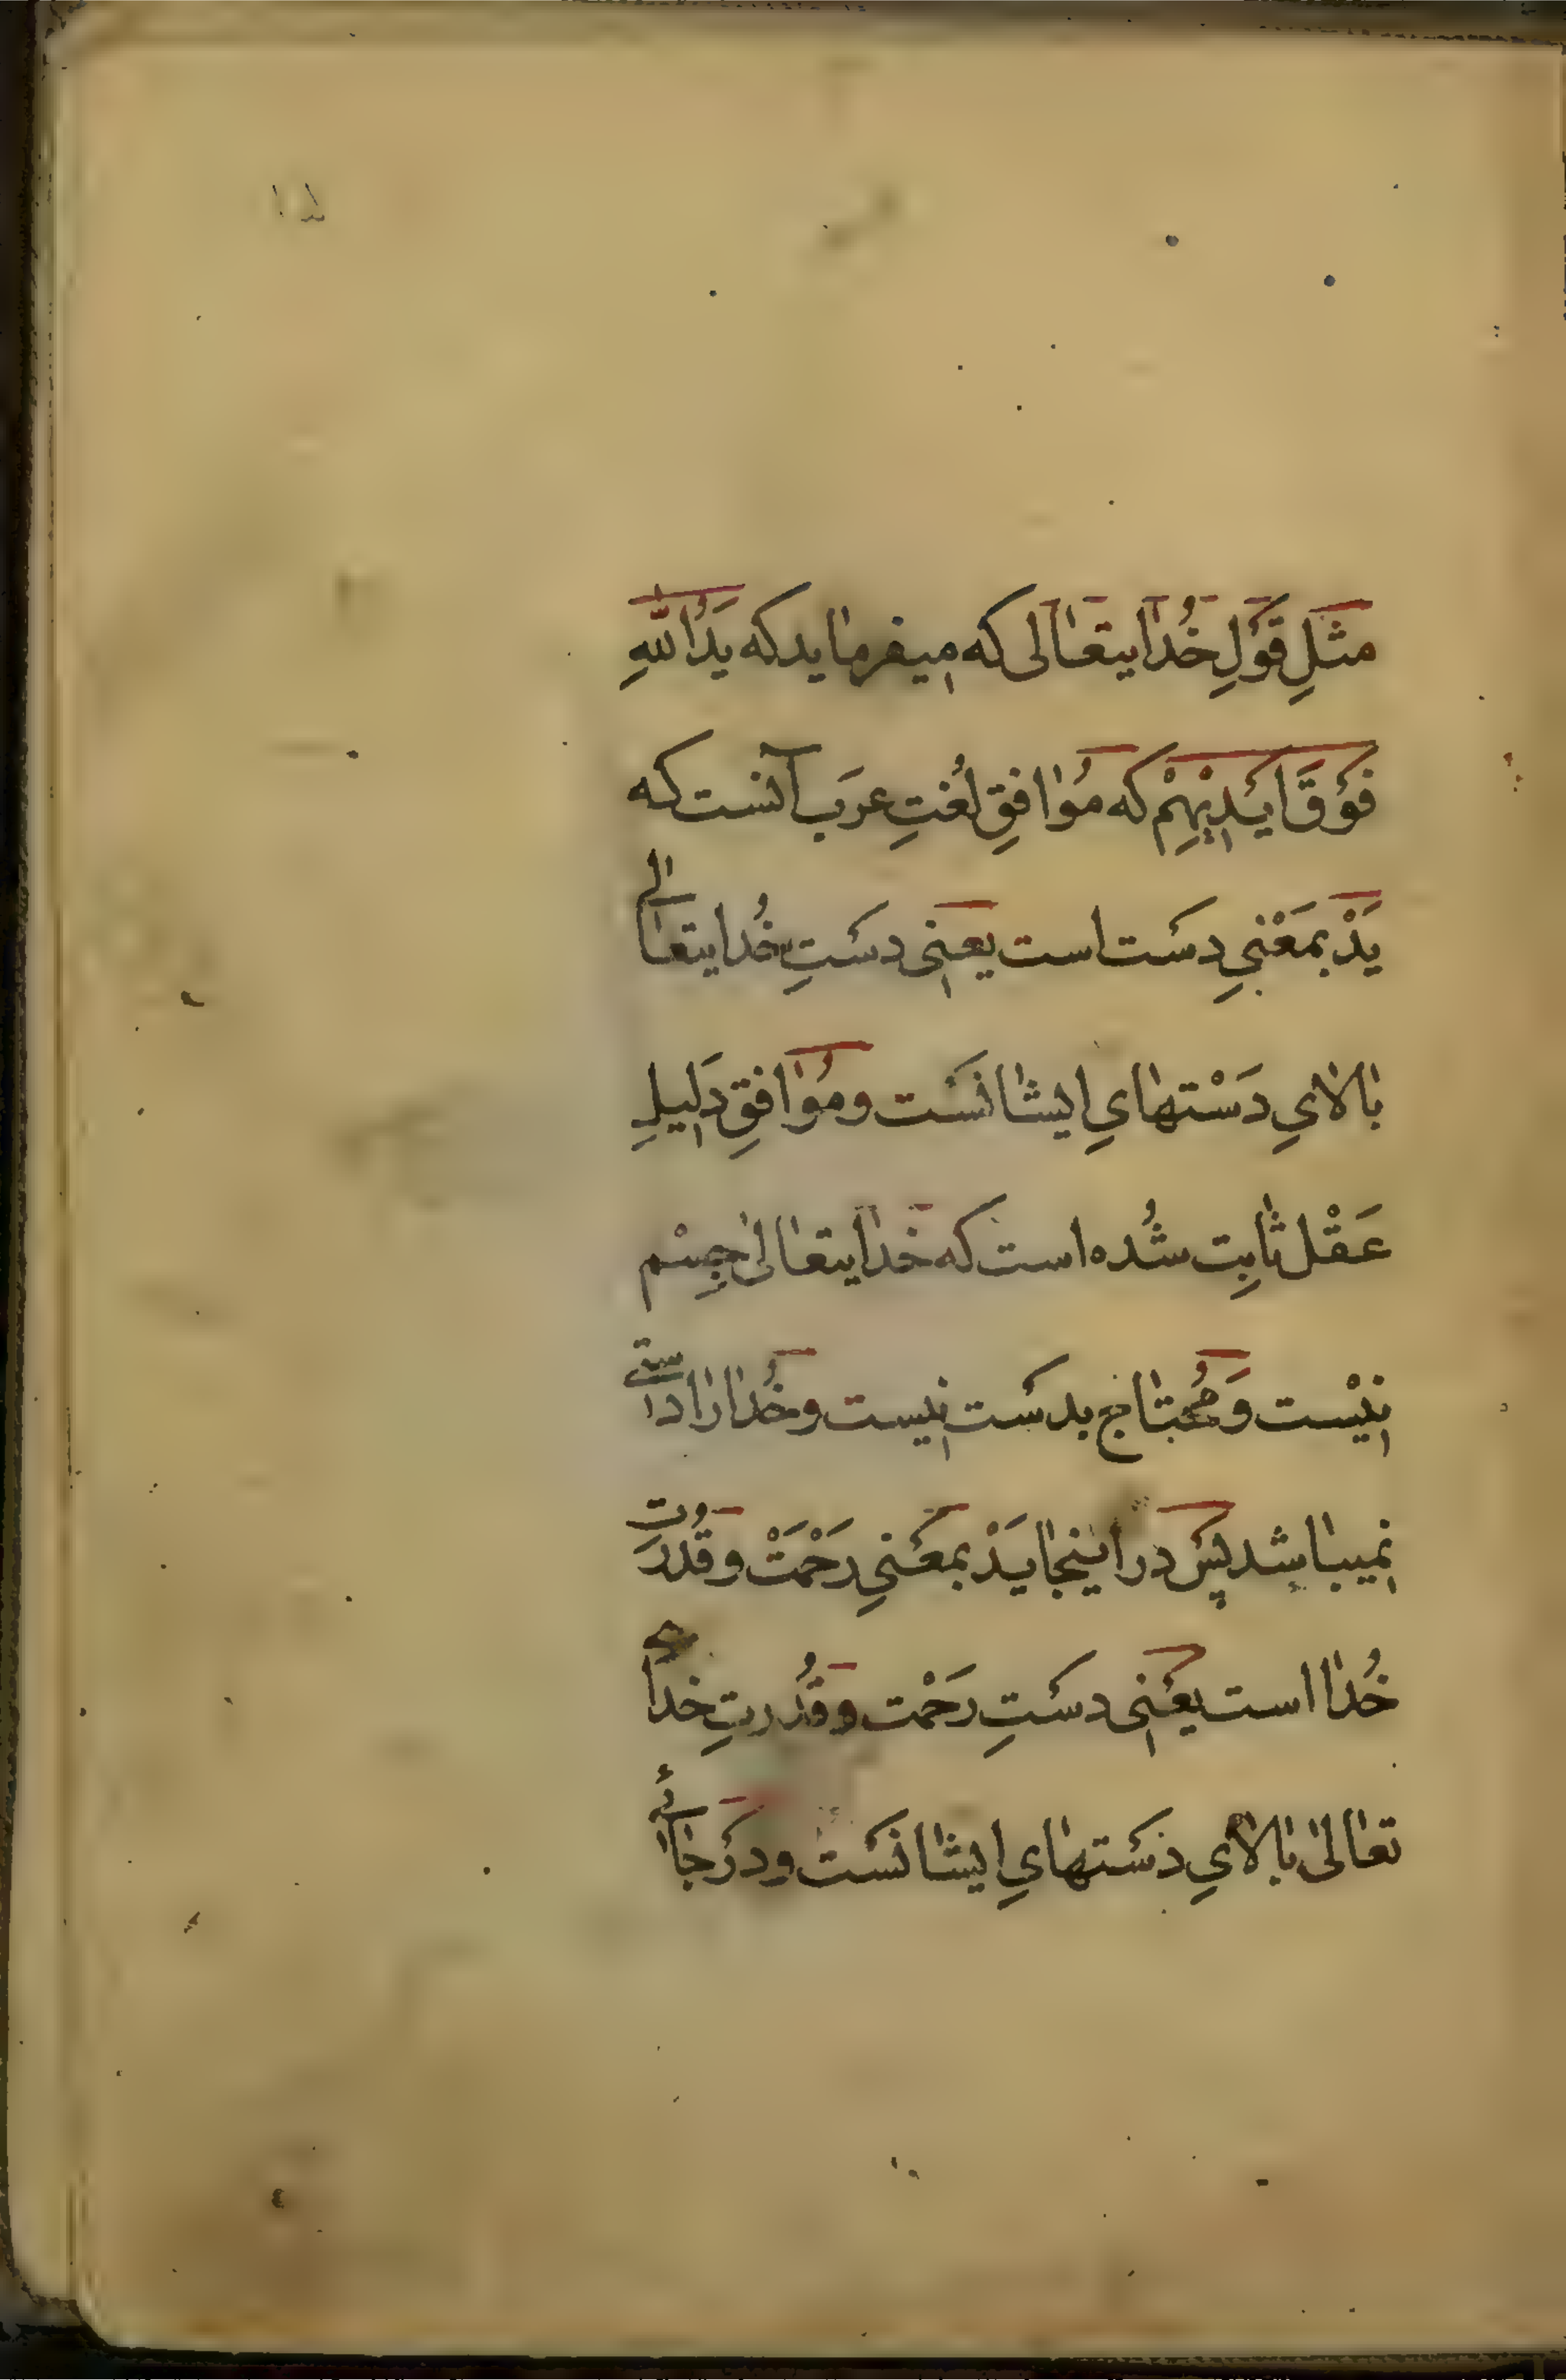 مثلِ قَوْلِ خُدایتعالی که میفرماید که یَدُاللّٰهِ
فَوْقَ اَیْدِیْهِمْ که مُوافقِ لُغتِ عرَب آنست که
یَدْ بمَعْنیِ دسْت است یعنی دسْتِ خُدایتعالی
بالایِ دَسْتهایِ ایشانَسْت و مُوافقِ دَلیلِ
عَقْل ثابِت شُده است که خدایتعالی جِسْم
نیْست وَ مُحتاج بدسْت نیست و خُدا را دستی
نمیباشد پسْ در اینجا یَدْ بمعْنیِ رَحْمَتْ و قُدرَت
خُدا است یعْنی دسْتِ رَحْمت و قُدرتِ خدای
تعالی بالایِ دسْتهایِ ایشانَسْت و دَرْ جائی